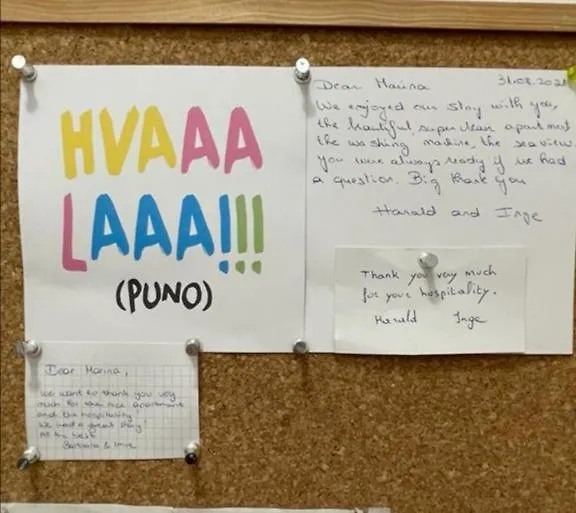 HVAAA
LAAA!!!!
(PUNO)
Dear Marina 31.08.202
We enjoyed our stay with you,
the beautiful, super clean apartment
the washing machine, the seaview.
you were always ready if we had
a question. Big thank you
Harald and Inge
Thank you very much
for your hospitality.
Harald Inge
Dear Marina,
We want to thank you very
much for the nice apartment
and the hospitality!
We had a great stay!
All the best
Barbara &